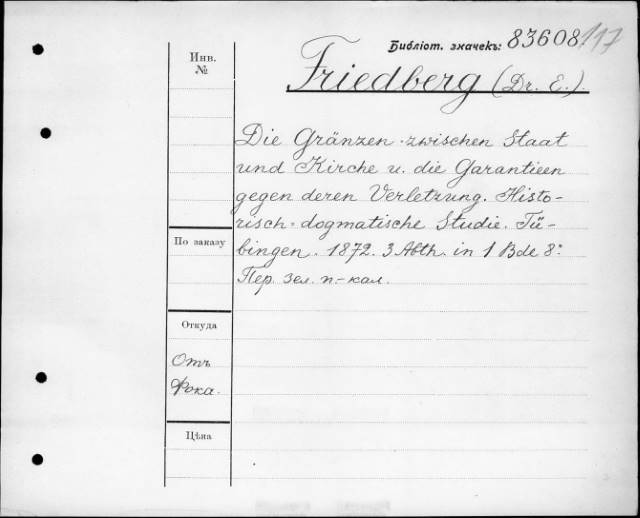 Библіот. значекъ: 83608/117
Инв.
№
Friedberg (Dr. E.).
Die Gränzen zwischen Staat
und Kirche u. die Garantieen
gegen deren Verletzung. Histo-
risch-dogmatische Studie. Tü-
bingen. 1872. 3 Abth. in 1 Bde 8º.
Пер. зел. п.-кал.
По заказу
Откуда
Отъ
Фока.
Цѣна